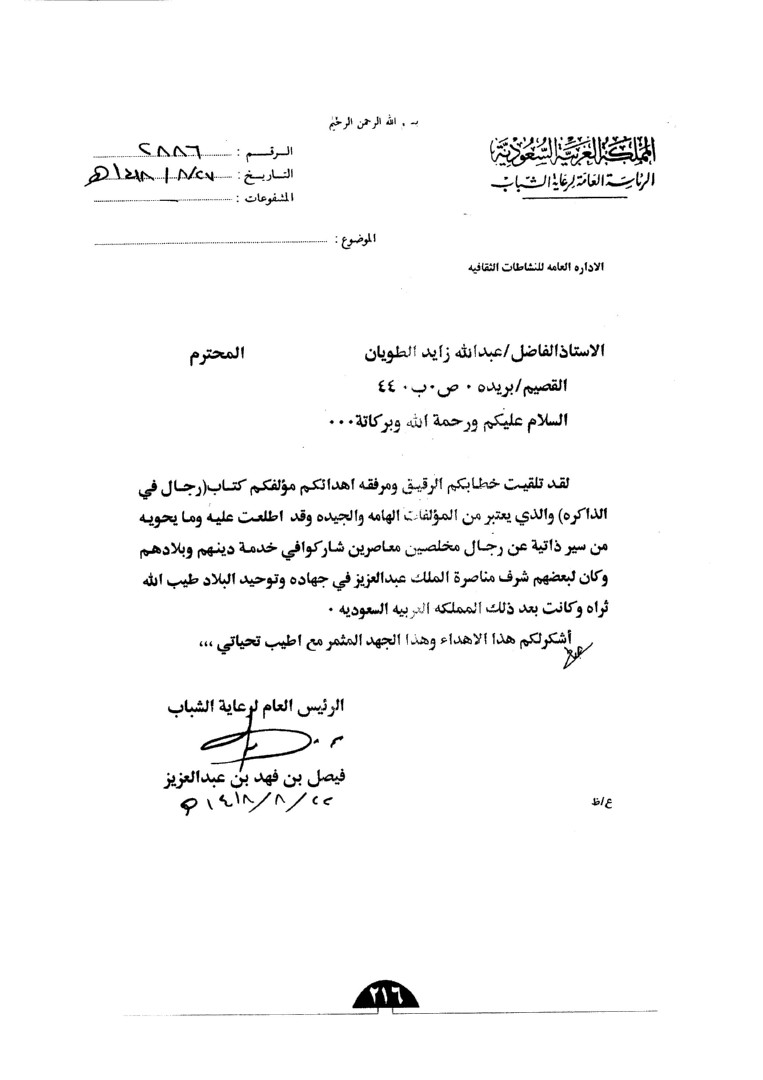 الله الرحمن الرحيم
المملكة العربية السعودية
الرئاسة العامة لرعاية الشباب
الرقم : ٢٨٨٦
التاريخ : ١٤١٨/٨/٢٧هـ
المشفوعات :
الموضوع :
الاداره العامه للنشاطات الثقافيه
الاستاذالفاضل/عبدالله زايد الطويان المحترم
القصيم/بريده ٠ ص٠ب٠ ٤٤
السلام عليكم ورحمة الله وبركاتة٠٠٠
لقد تلقيت خطابكم الرقيق ومرفقه اهدائكم مؤلفكم كتاب(رجال في
الذاكره) والذي يعتبر من المؤلفات الهامه والجيده وقد اطلعت عليه وما يحويه
من سير ذاتية عن رجال مخلصين معاصرين شاركوافي خدمة دينهم وبلادهم
وكان لبعضهم شرف مناصرة الملك عبدالعزيز في جهاده وتوحيد البلاد طيب الله
ثراه وكانت بعد ذلك المملكه العربيه السعوديه ٠
أشكرلكم هذا الاهداء وهذا الجهد المثمر مع اطيب تحياتي ،،،
الرئيس العام لرعاية الشباب
فيصل بن فهد بن عبدالعزيز
١٤١٨/٨/٢٢هـ
ع/ظ
٢١٦